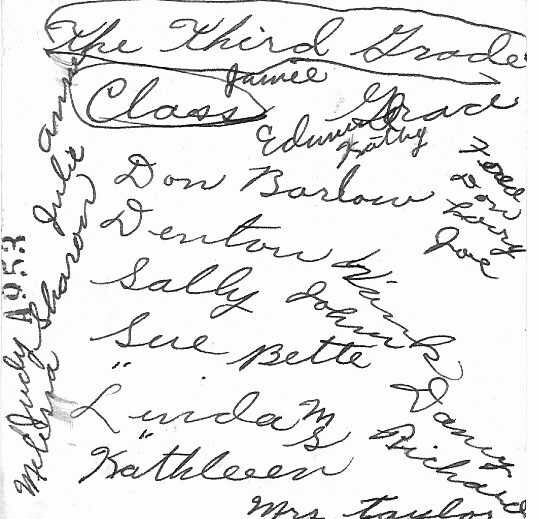 The Third Grade
Class
Jamee
Grace
Edmund
Kathy
Don Barlow
Denton Wink
Sally John
Sue Bette
" Linda M
" S
Kathleen
Mrs Taylor
Danny
Richard
Fred
Don
Larry
Joe
Anne
Julie
Sharon
Judy
Melissa
A953